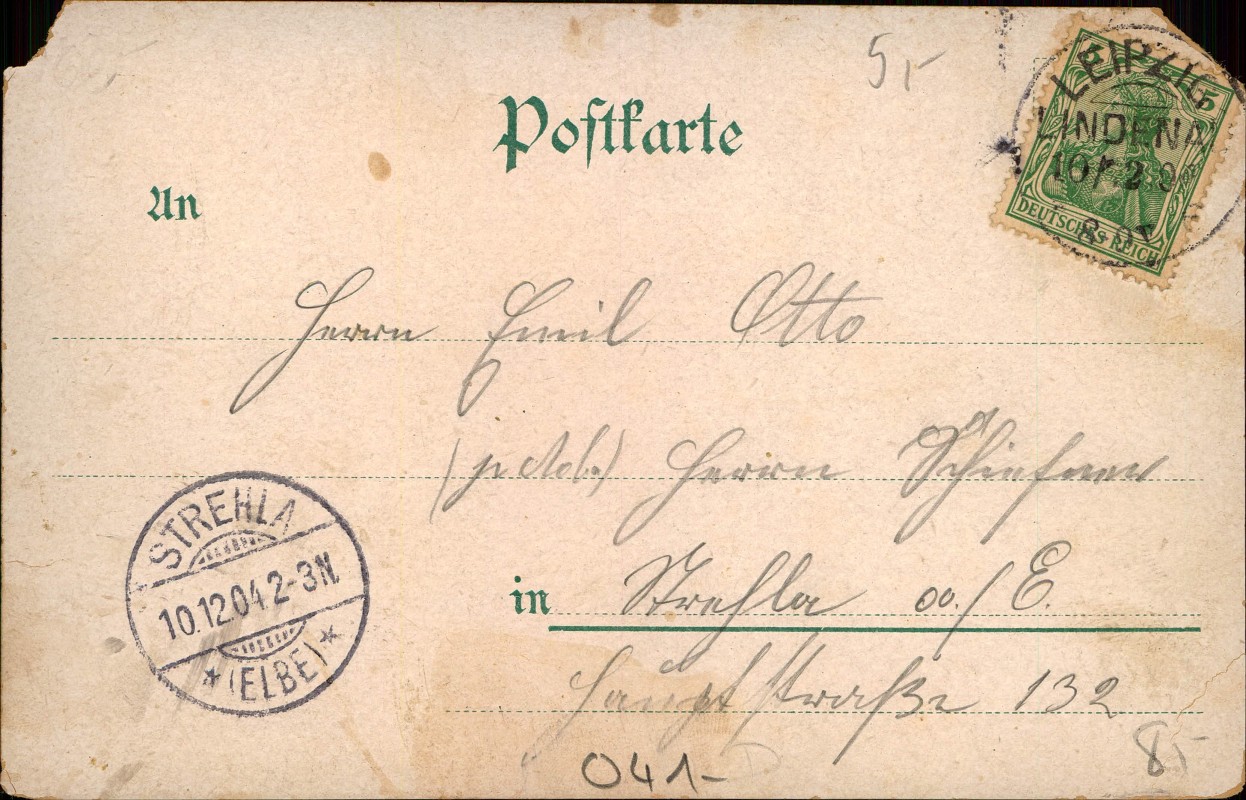 5,-
Postkarte
An
5 5
LEIPZIG
LINDENA
10/12 04
8-9V
DEUTSCHES REICH
Herrn Emil Otto
Herrn
STREHLA
10.12.04 2-3N.
* (ELBE) *
in Strehla a./E.
Hauptstraße 132
041-
8,-